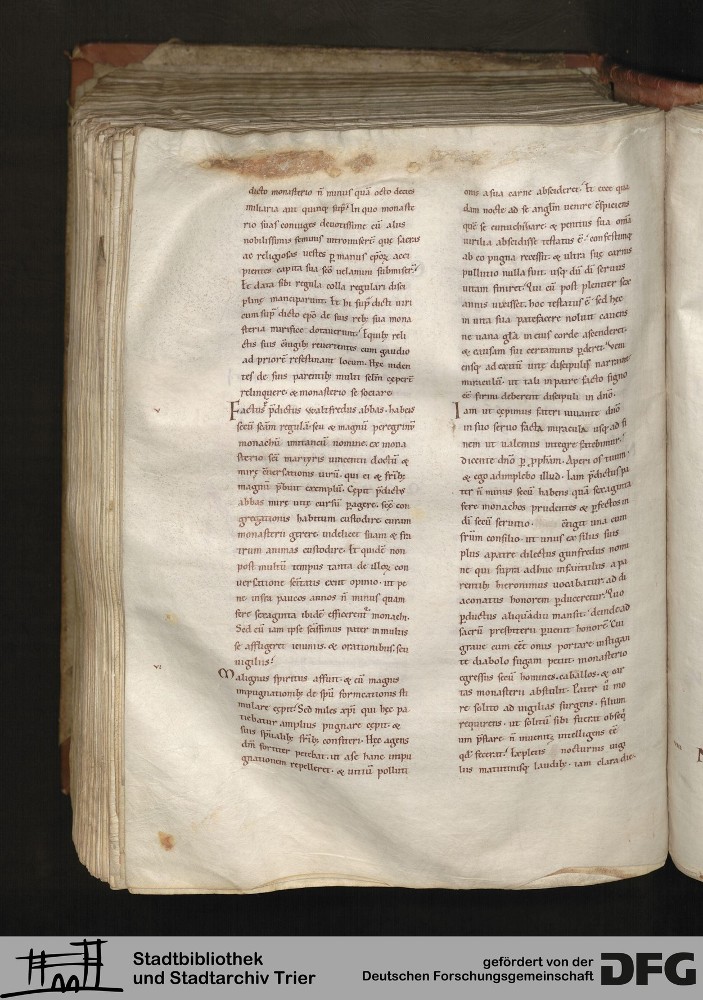 dicto monasterio ñ minus quā octo decies
miliaria aut quinq; supᵃ. In quo monaste
rio suas coniuges deuotissime cū aliis
nobilissimis feminis intromiserͭ. que sacras
ac religiosas uestes ꝑ manus epōꝝ acci
pientes capita sua scō uelamini submiserͭ.
Et data sibi regula colla regulari disci
pline manciparunt. Et hi supͣ dicti uiri
cum supͣ dicto epō de suis reb; sua mona
steria mirifice dotauerunt. Equib; reli
ad priorē festinant locum. Hęc uiden
tes de suis parentib; multi
relinquere. & monasterio se sociare.
Factus p̄dictus uualtfredus abbas. habens
secū scām regulā. seu & magnū peregrinū
monachū uitancū nomine. ex mona
sterio scī martyris uincentii doctū &
mire cōuersationis uirū. qui ei & frīb;
magnū p̄buit exemplū. Cepit p̄dictꝰ
abbas mire uite cursū ꝑagere. scę con
gregationis habitum custodire. curam
monasterii gerere. uidelicet suam & fra
trum animas custodire. Et quidē non
post multū tempus tanta de illoꝝ con
uersatione scītatis exiit opinio. ut pe
ne infra paucos annos ñ minus quam
fere sexaginta ibidē efficerent̾ monachi.
Sed cū iam ipse scīssimus pater in multis
se affligeret ieiuniis. & orationibus. seu
uigiliis.
VI
Malignus spiritus affuit. & cū magnis
impugnationib; de spū fornicationis sti
mulare cepit. Sed miles xp̄i qui hęc pa
tiebatur amplius pugnare cepit. &
suis spūalib; frīb; confiteri. Hęc agens
dn̄m fortiter petebat. ut a se hanc impu
gnationem repelleret. & uitiū polluti
onis a sua carne abscideret. Et ecce qua
dam nocte ad se anglm̄ uenire cōspiciens
que se eunuchizare. & penitus sua omīa
uirilia abscidisse testatus ē. confestimq;
ab eo pugna recessit. & ultra sue carnis
pollutio nulla fuit. usq; dū dī seruus
uitam finiret. Qui cū post plenit̾ sex
annis uixisset. hoc testatus ē. sed hęc
in uita sua patefacere noluit cauens
ne uana glā in eius corde ascenderet.
& causam sui certaminis ꝑderet. Veni
ensq; ad exitū uite discipulis narrauit
miraculū. ut tali in patre facto signo
cū firmi deberent discipuli in dnō.
Iam ut cepimus fateri iuuante dnō
in suo seruo facta miracula. usq; ad fi
nem ut ualemus integre fatebimur.
dicente dnō ꝑ ꝓpham. Aperi os tuum.
& ego adimplebo illud. Iam p̄dictus pa
ter ñ minus secū habens quā sexaginta
fere monachos prudentes & ꝑfectos in
dī seu seruitio. cōtigit una cum
frūm consilio. ut unus ex filiis suis
plus a patre dilectus gunfredus nomi
ne qui supra adhuc infantulus a pa
rentib; hieronimus uocabatur. ad di
aconatus honorem ꝑduceretur. Quo
p̄dictus aliquādiu mansit. deinde ad
sacrū presbiterii ꝑuenit honorē. Cui
graue cum eēt onus portare instigan
te diabolo fugam petiit. monasterio
egressus secū homines. caballos. & car
tas monasterii abstulit. Pater ū mo
re solito ad uigilias surgens. filium
requirens. ut solitū sibi fuerat obseq;
um p̄stare. ñ inuenit. intelligens cē
qd' fecerat. Expletis nocturnis uigi
liis matutinisq; laudib; iam clara die.
Stadtbibliothek
und Stadtarchiv Trier
gefördert von der
Deutschen Forschungsgemeinschaft
DFG